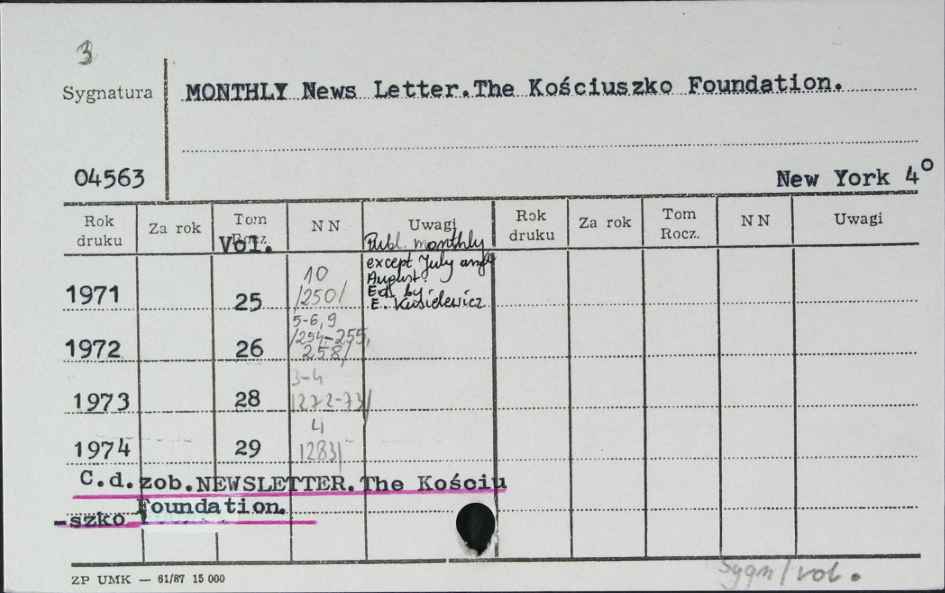 3
Sygnatura
MONTHLY News Letter.The Kościuszko Foundation.
04563
New York 4°
Rok druku Za rok Tom Rocz. NN Uwagi Rok druku Za rok Tom Rocz. NN Uwagi
Vol.
Publ. monthly
except July and
August.
Ed. by
E. Kusielewicz
1971 25 10 /250/
1972 26 5-6,9 /254-255, 258/
1973 28 3-4 /272-73/
1974 29 4 /283/
C.d.zob.NEWSLETTER.The Kościu
-szko Foundation.
ZP UMK — 61/87 15 000
Sygn/vol.